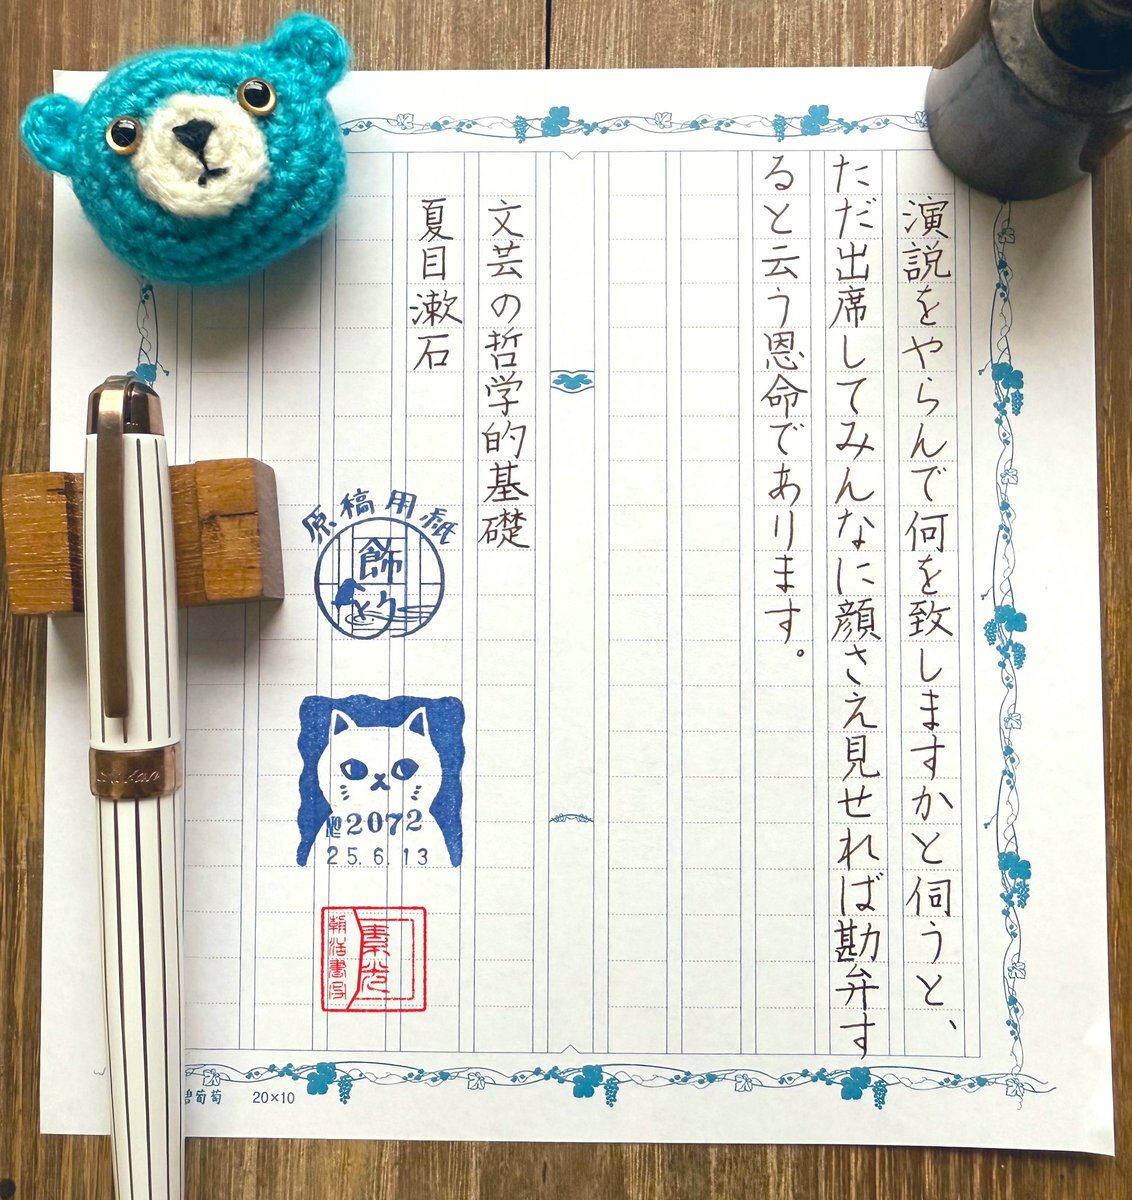 演説をやらんで何を致しますかと伺うと、
ただ出席してみんなに顔さえ見せれば勘弁す
ると云う恩命であります。
文芸の哲学的基礎
夏目漱石
原稿用紙
飾
とり
№2072
25.6.13
朝活書写
碧葡萄 20×10